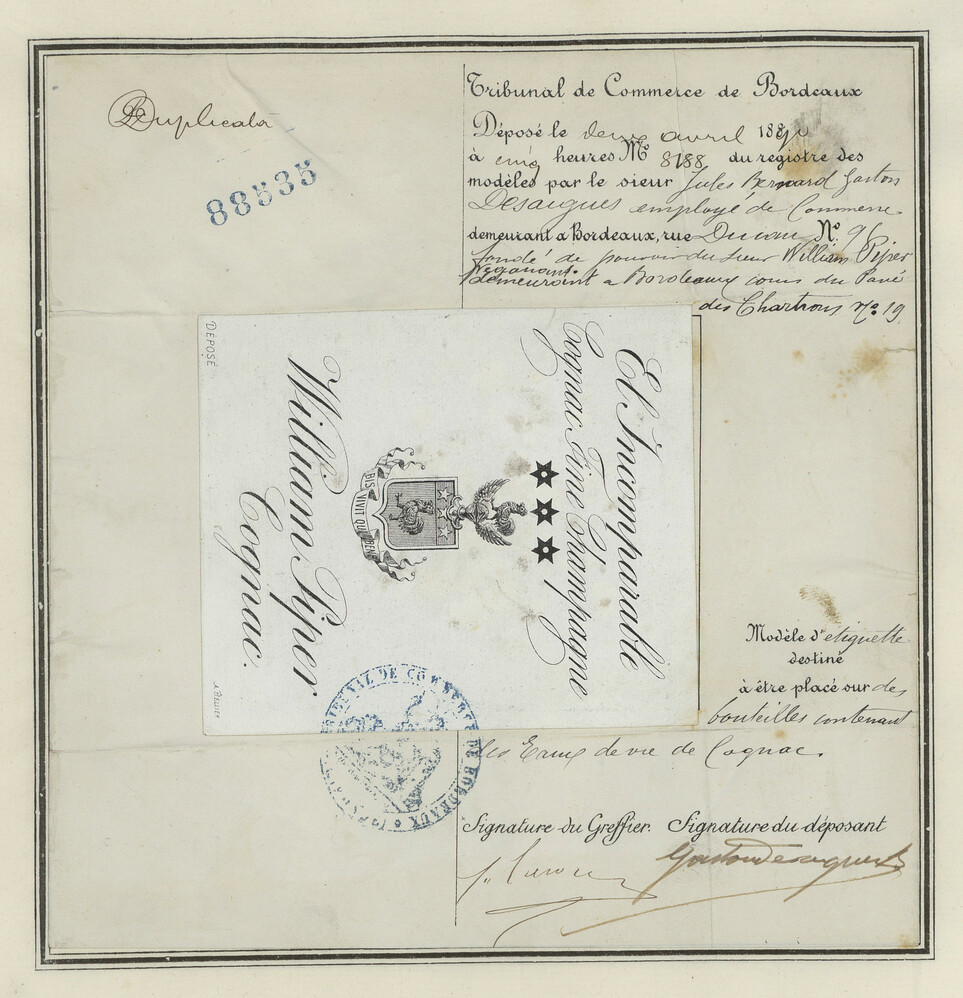 Duplicata
88535
Tribunal de Commerce de Bordeaux
Déposé le deux avril 188
à cinq heures No 8188 du registre des
modèles par le sieur Jules Bernard Gaston
Desaigues employé de Commerce
demeurant a Bordeaux, rue No 96
fondé de pouvoir du sieur William Piper
Negociant
demeurant a Bordeaux cours du Pavé
des Chartrons No 19
DÉPOSÉ
El Incomparable
Cognac Fine Champagne
BIS VIVIT QUI BENE
William Piper
Cognac.
Modèle d'etiquette
destiné
à être placé sur des
bouteilles contenant
des Eaux de vie de Cognac.
TRIBUNAL DE COMMERCE DE BORDEAUX
Signature du Greffier. Signature du déposant
Gaston Desaigues